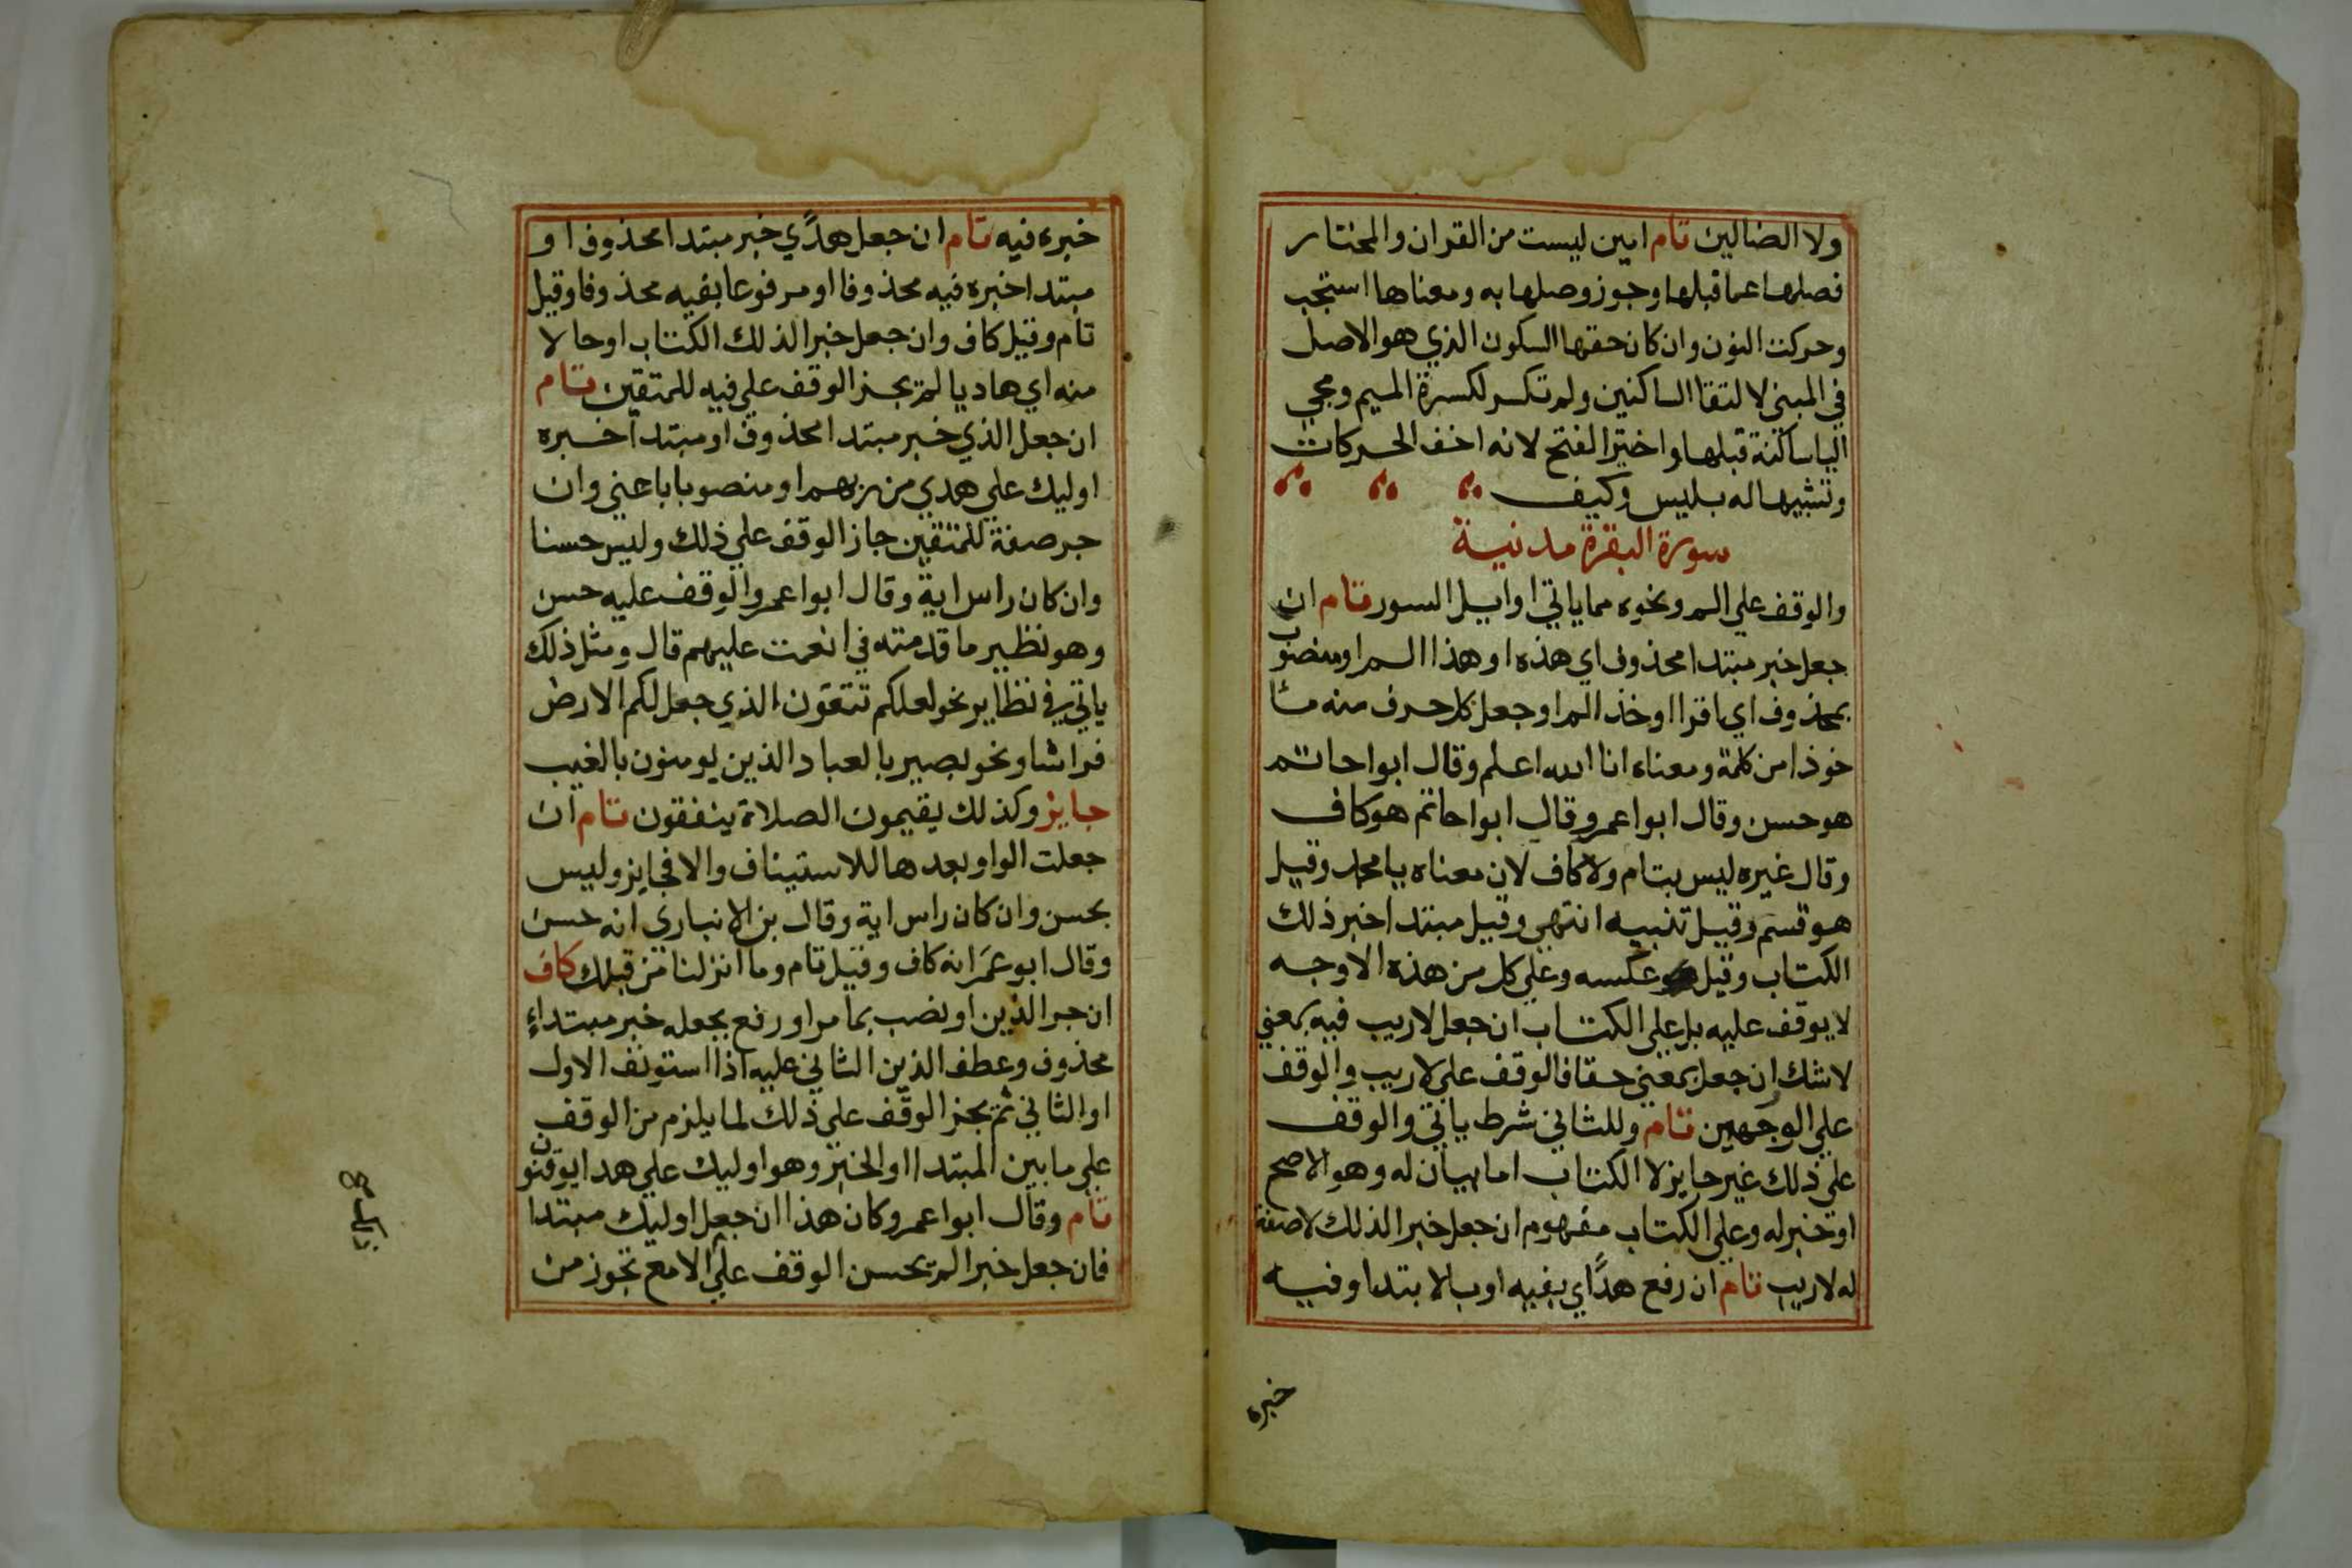 ولا الضالين تام امين ليست من القران والمختار
فصلها عما قبلها وجوز وصلها به ومعناها استجب
وحركت النون وان كان حقها السكون الذي هو الاصل
في المبني لالتقا الساكنين ولم تكسر لكسرة الميم ومجي
اليا ساكنة قبلها واختير الفتح لانه اخف الحركات
وتشبيها له بليس وكيف
سورة البقرة مدنية
والوقف علي الم ونحوه مما ياتي اوايل السور تام ان
جعل خبر مبتدا محذوف اي هذه او هذا الم او منصوب
بمحذوف اي اقرا او خذ الم او جعل كل حرف منه ما
خوذا من كلمة ومعناه انا الله اعلم وقال ابوا حاتم
هو حسن وقال ابوا عمرو وقال ابوا حاتم هو كاف
وقال غيره ليس بتام ولا كاف لان معناه يا محمد وقيل
هو قسم وقيل تنبيه انتهي وقيل مبتدا خبر ذلك
الكتاب وقيل عكسه وعلي كل من هذه الاوجه
لا يوقف عليه بل علي الكتاب ان جعل لاريب فيه بمعني
لاشك ان جعل بمعني حقا فالوقف علي لاريب والوقف
علي الوجهين تام وللثاني شرط ياتي والوقف
علي ذلك غير جايز لا الكتاب اما بيان له وهو الاصح
او خبر له وعلي الكتاب مفهوم ان جعل خبرا لذلك لاصفة
له لاريب تام ان رفع هدًاي بفيه او بالابتدا وفيه
خبره
خبره فيه تام ان جعل هدًي خبر مبتدا محذوف او
مبتدا خبره فيه محذوفا او مرفوعا بفيه محذوفا وقيل
تام وقيل كاف وان جعل خبرا لذلك الكتاب او حالا
منه اي هاديا لم يجز الوقف علي فيه للمتقين تام
ان جعل الذي خبر مبتدا محذوف او مبتدا خبره
اوليك علي هدي من ربهم او منصوبا باعني وان
جر صفة للمتقين جاز الوقف علي ذلك وليس حسنا
وان كان راس اية وقال ابوا عمرو الوقف عليه حسن
وهو نظير ما قدمته في انعمت عليهم قال ومثل ذلك
ياتي في نظاير نحو لعلكم تتقون الذي جعل لكم الارض
فراشا ونحو بصير بالعباد الذين يومنون بالغيب
جايز وكذلك يقيمون الصلاة ينفقون تام ان
جعلت الواو بعدها للاستيناف والا فجايز وليس
بحسن وان كان راس اية وقال بن الانباري انه حسن
وقال ابو عمر انه كاف وقيل تام وما انزلنا من قبلك كاف
ان جر الذين او نصب بما مر او رفع بجعله خبر مبتداء
محذوف وعطف الذين الثاني عليه اذا استونف الاول
او الثاني ثم يجز الوقف علي ذلك لما يلزم من الوقف
علي ما بين المبتدا او الخبر وهو اوليك علي هدا يوقنون
تام وقال ابوا عمرو كان هذا ان جعل اوليك مبتدا
فان جعل خبرا لم يحسن الوقف علي الا مع تجوز من